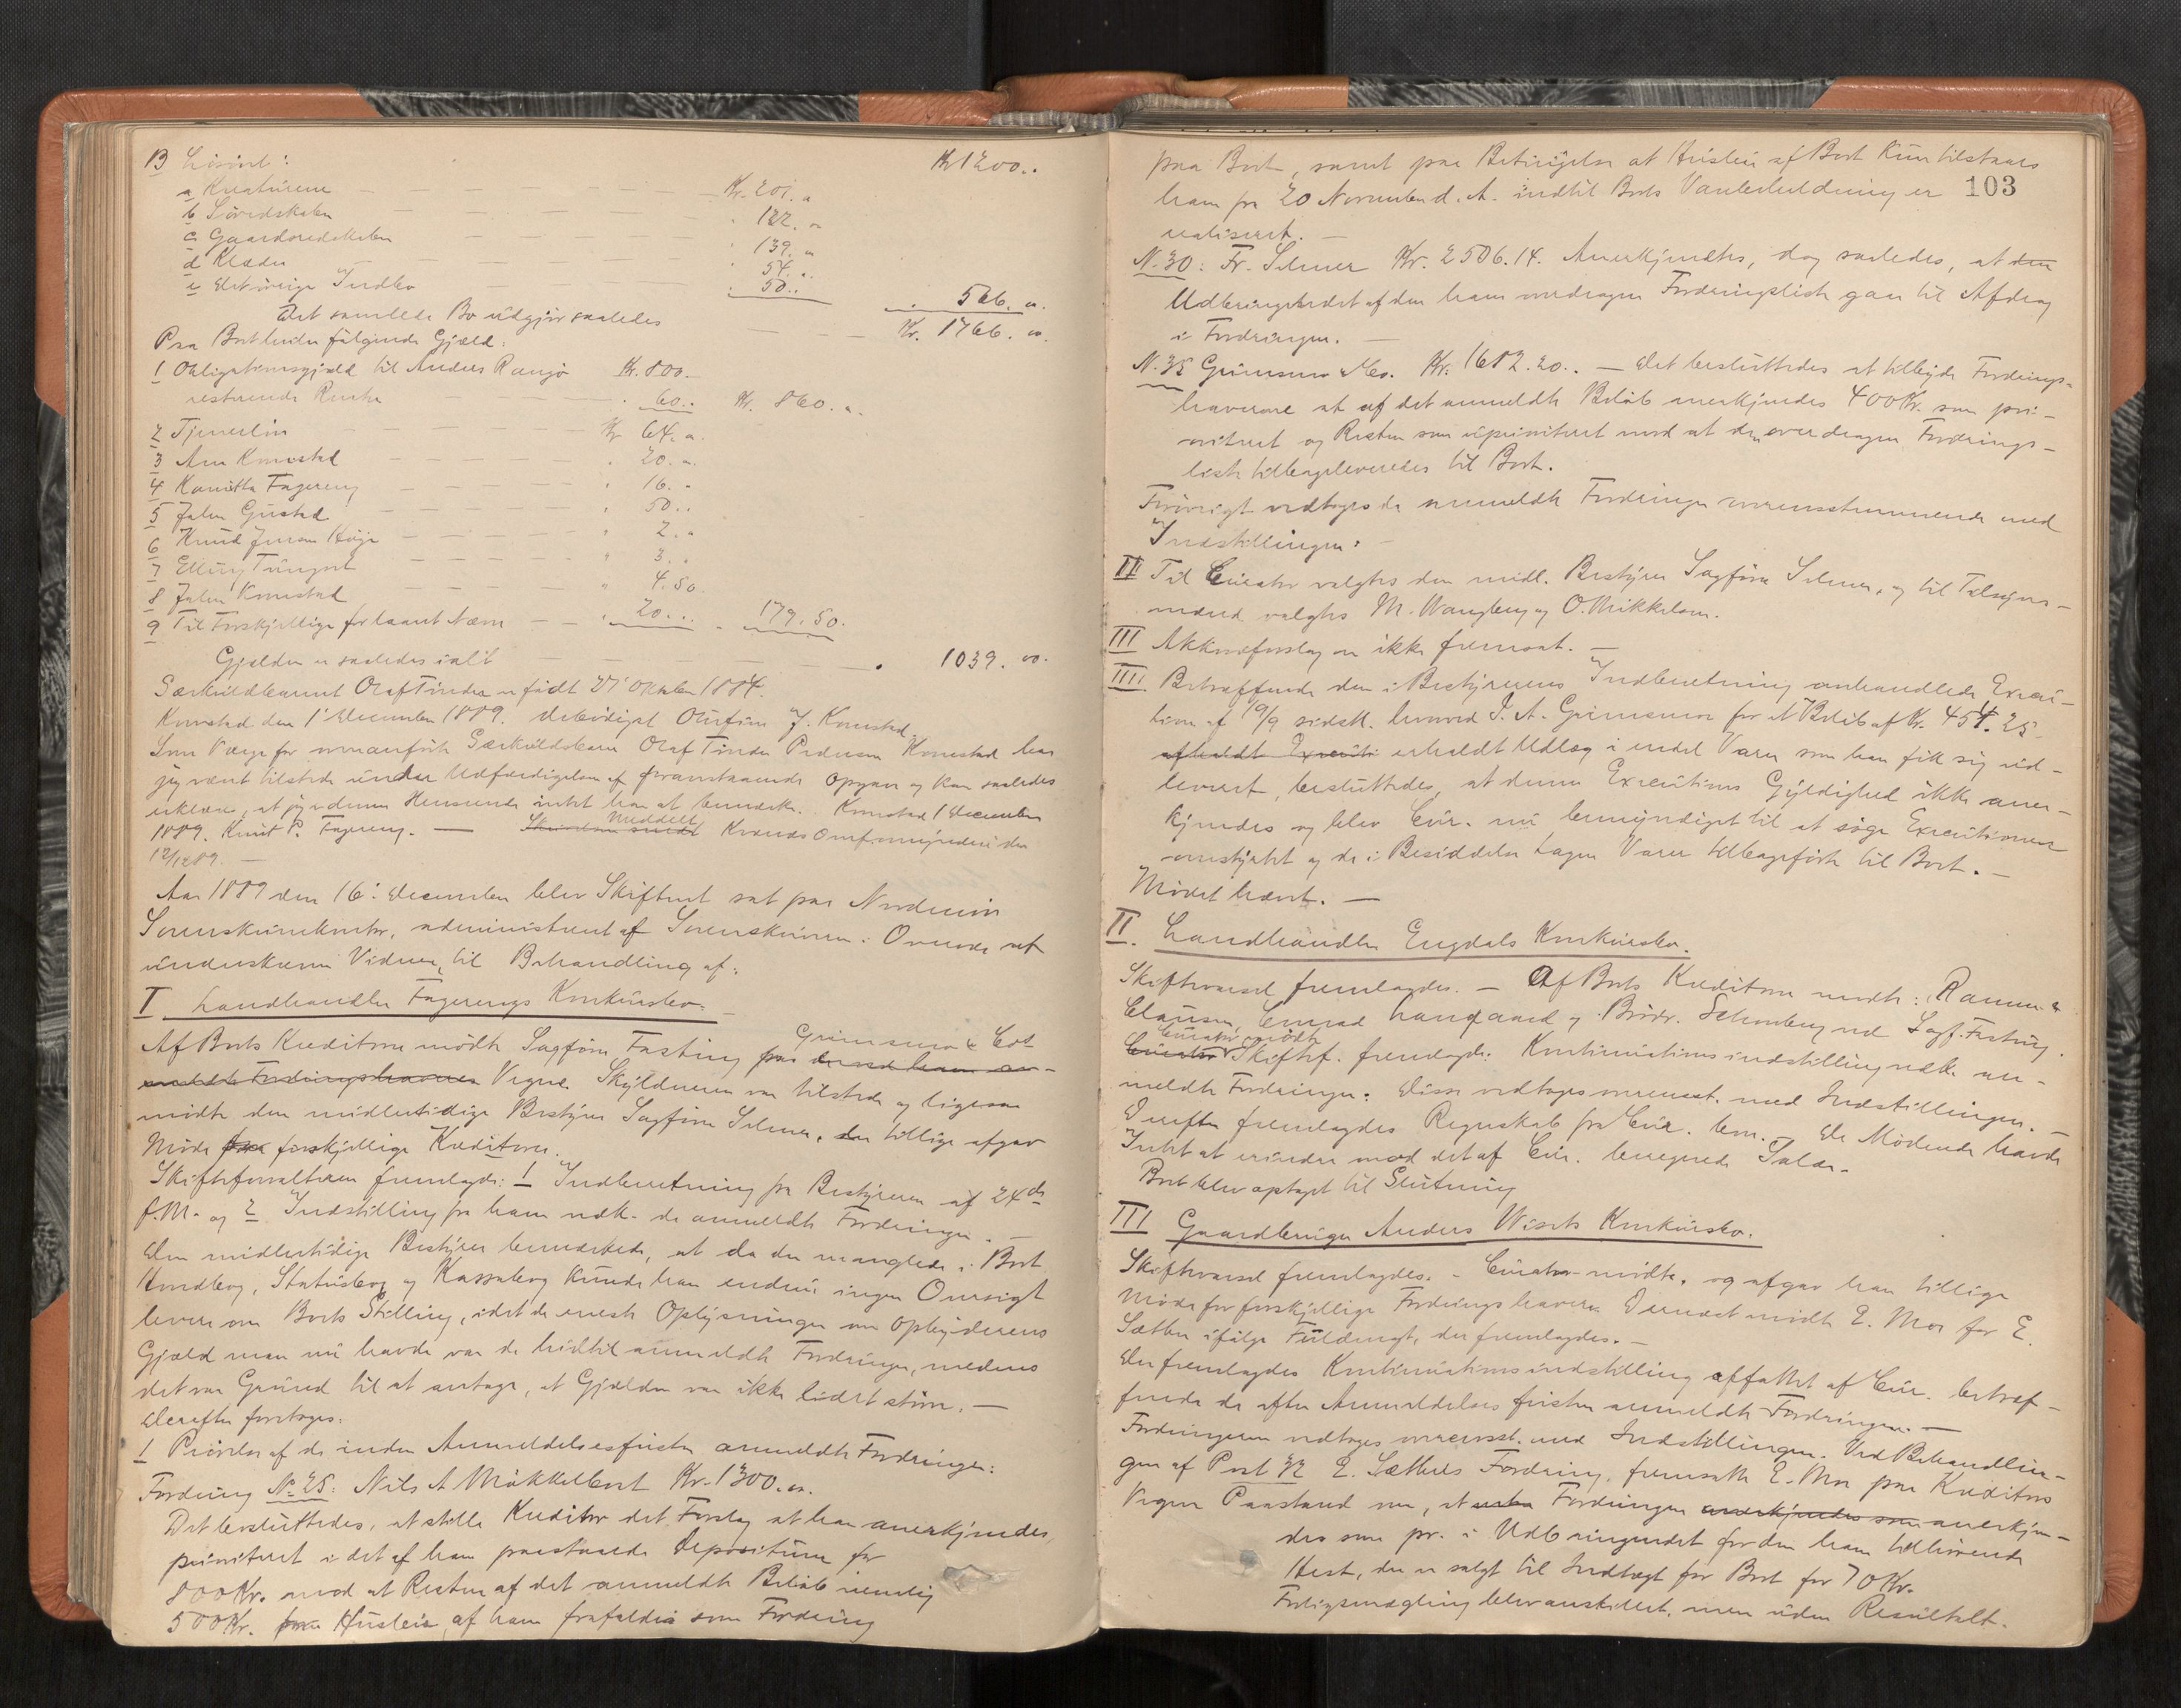 B Løsøre: Kr 1200..
a Kreaturene Kr. 201. "
b Søredskaber " 122. "
c Gaardsredskaber " 139. "
d Klæder " 54. "
e Det øvrige Indbo " 50.. " 566. "
Det samlede Bo udgjør saaledes Kr. 1766. "
Paa Boet hviler følgende Gjæld:
1 Obligationsgjæld til Anders Kr. 800.
resterende Renter " 60.. Kr. 860. "
2 Tjenerløn Kr 64. "
3 Ane Knestad " 20. "
4 Fagereng " 16. "
5 John Gustad " 50..
6 Knud Jensen " 2. "
7 Elling " 3. "
8 John Knestad " 4.50
9 Til Forskjellige for laant Næm " 20... " 179.50.
Gjælden er saaledes ialt " 1039. 00.
Særkuldbarnet Olaf Tinder er født 27' Oktober 1884.
Knestad den 1' December 1889. Ærbødigst Oluf J. Knestad.
Som Værge for ovenanførte Særkuldsbarn Olaf Tinder Pedersen Knestad har
jeg været tilstede under Udfærdigelsen af foranstaaende Opgave og kan saaledes
erklære, at jeg i denne Henseende intet har at bemærke. Knestad 1 December
1889. Knut P. Fagereng. — Meddelt den
12/12 89. —
Aar 1889 den 16' December blev Skifteret sat paa Nordmør
Sorenskriverkontor, administreret af Sorenskriveren i Overvær af
underskrevne Vidner, til Behandling af:
I Landhandler Fagerengs Konkursbo.
Af Boets Kreditorer mødte Sagfører Fasting paa Grimsmo & Cos
anmeldte Fordringshaveres Vegne. Skyldneren var tilstede og ligesaa
mødte den midlertidige Bestyrer Sagfører Selmer, der tillige afgav
Møde for forskjellige Kreditorer.
Skifteforvalteren fremlagde: 1 Indberetning fra Bestyreren af 24de
f.M. og 2 Indstilling fra ham vedk. de anmeldte Fordringer. —
Den midlertidige Bestyrer bemærkede, at da der manglede i Boet
Hovedbog, Statusbog og Kassabog kunde han endnu ingen Oversigt
levere om Boets Stilling, idet de eneste Oplysninger om Opbyderens
Gjæld man nu havde var de hidtil anmeldte Fordringer, medens
det var Grund til at antage, at Gjælden var ikke lidet større. —
Derefter foretoges:
1 Prøvelse af de inden Anmeldelsesfristen anmeldte Fordringer:
Fordring No 25: Nils A Møkkelbost Kr. 1300. "
Det besluttedes, at stille Kreditor det Forslag at han anerkjendes
prioriteret i det af ham paastaaede Depositum for
800 Kr. mod at Resten af det anmeldte Beløb nemlig
500 Kr. for Husleie af ham frafaldes som Fordring
103
paa Boet, samt paa Betingelse at Husleie af Boet kun tilstaaes
ham fra 20 November d. A. indtil Boets Varebeholdning er
realiseret. —
N. 30: Fr. Selmer Kr. 2506.14. Anerkjendtes, dog saaledes, at den
Udbringendet af den ham overdragne Fordringsliste gaar til Afdrag
i Fordringen. —
N. 35 Grimsmo & Co. Kr. 1682.20.. — Det besluttedes at tilbyde Fordrings-
haverne at af det anmeldte Beløb anerkjendes 400 Kr. som pri-
oriteret og Resten som uprioriteret mod at den overdragne Fordrings-
liste tilbageleveredes til Boet.
Forøvrigt vedtoges de anmeldte Fordringer overensstemmende med
Indstillingen. —
II Til Curator valgtes den midl. Bestyrer Sagfører Selmer, og til Tilsyns-
mænd valgtes M. Wangberg og O. Mikkelsen.
III Akkordforslag er ikke fremsat. —
IIII. Betræffende den i Bestyrerens Indberetning omhandlede Execu-
tion af 19/9 sidstl. hvorved I. A. Grimsmo for et Beløb af Kr. 454.25
afholdt Executi erholdt Udlæg i endel Varer som han fik sig ud-
leveret, besluttedes, at denne Executions Gyldighed ikke aner-
kjendes og blev Cur. nu bemyndiget til at søge Executionen
omstødt og de i Besiddelse tagne Varer tilbageført til Boet. —
Mødet hævet. —
II. Landhandler Engdals Konkursbo.
Skiftevarsel fremlagdes. — Af Boets Kreditorer mødte: Ramm &
Clausen, Conrad Langaard og Brødr. Schonberg ved Sagf. Fasting.
Curator mødte
Curator Skiftef. fremlagde: Kontinuationsindstilling vedk. an-
meldte Fordringer. Disse vedtoges overenst. med Indstillingen. —
Derefter fremlagdes Regnskab fra Cur. bon. — De Mødende havde
Intet at erindre mod det af Cur. beregnede Salær.
Boet blev optaget til Slutning
III Gaardbruger Anders Wiseths Konkursbo.
Skiftevarsel fremlagdes. — Curator mødte, og afgav han tillige
Møde for forskjellige Fordringshavere. Desuden mødte E. Moe for E.
Sæther ifølge Fuldmagt, der fremlagdes. —
Der fremlagdes Kontinuationsindstilling affattet af Cur. betræf-
fende de efter Anmeldelsesfristen anmeldte Fordringer. —
Fordringerne vedtoges overensst. med Indstillingen. Ved Behandlin-
gen af Post 32 E. Sæthers Fordring, fremsatte E. Moe paa Kreditors
Vegne Paastand om, at Fordringen anerkjendes som anerkjen-
des som pr. i Udbringendet for den ham tilhørende
Hest, der er solgt til Indtægt for Boet for 70 Kr.
Forligsmægling blev anstillet, men uden Resultat.